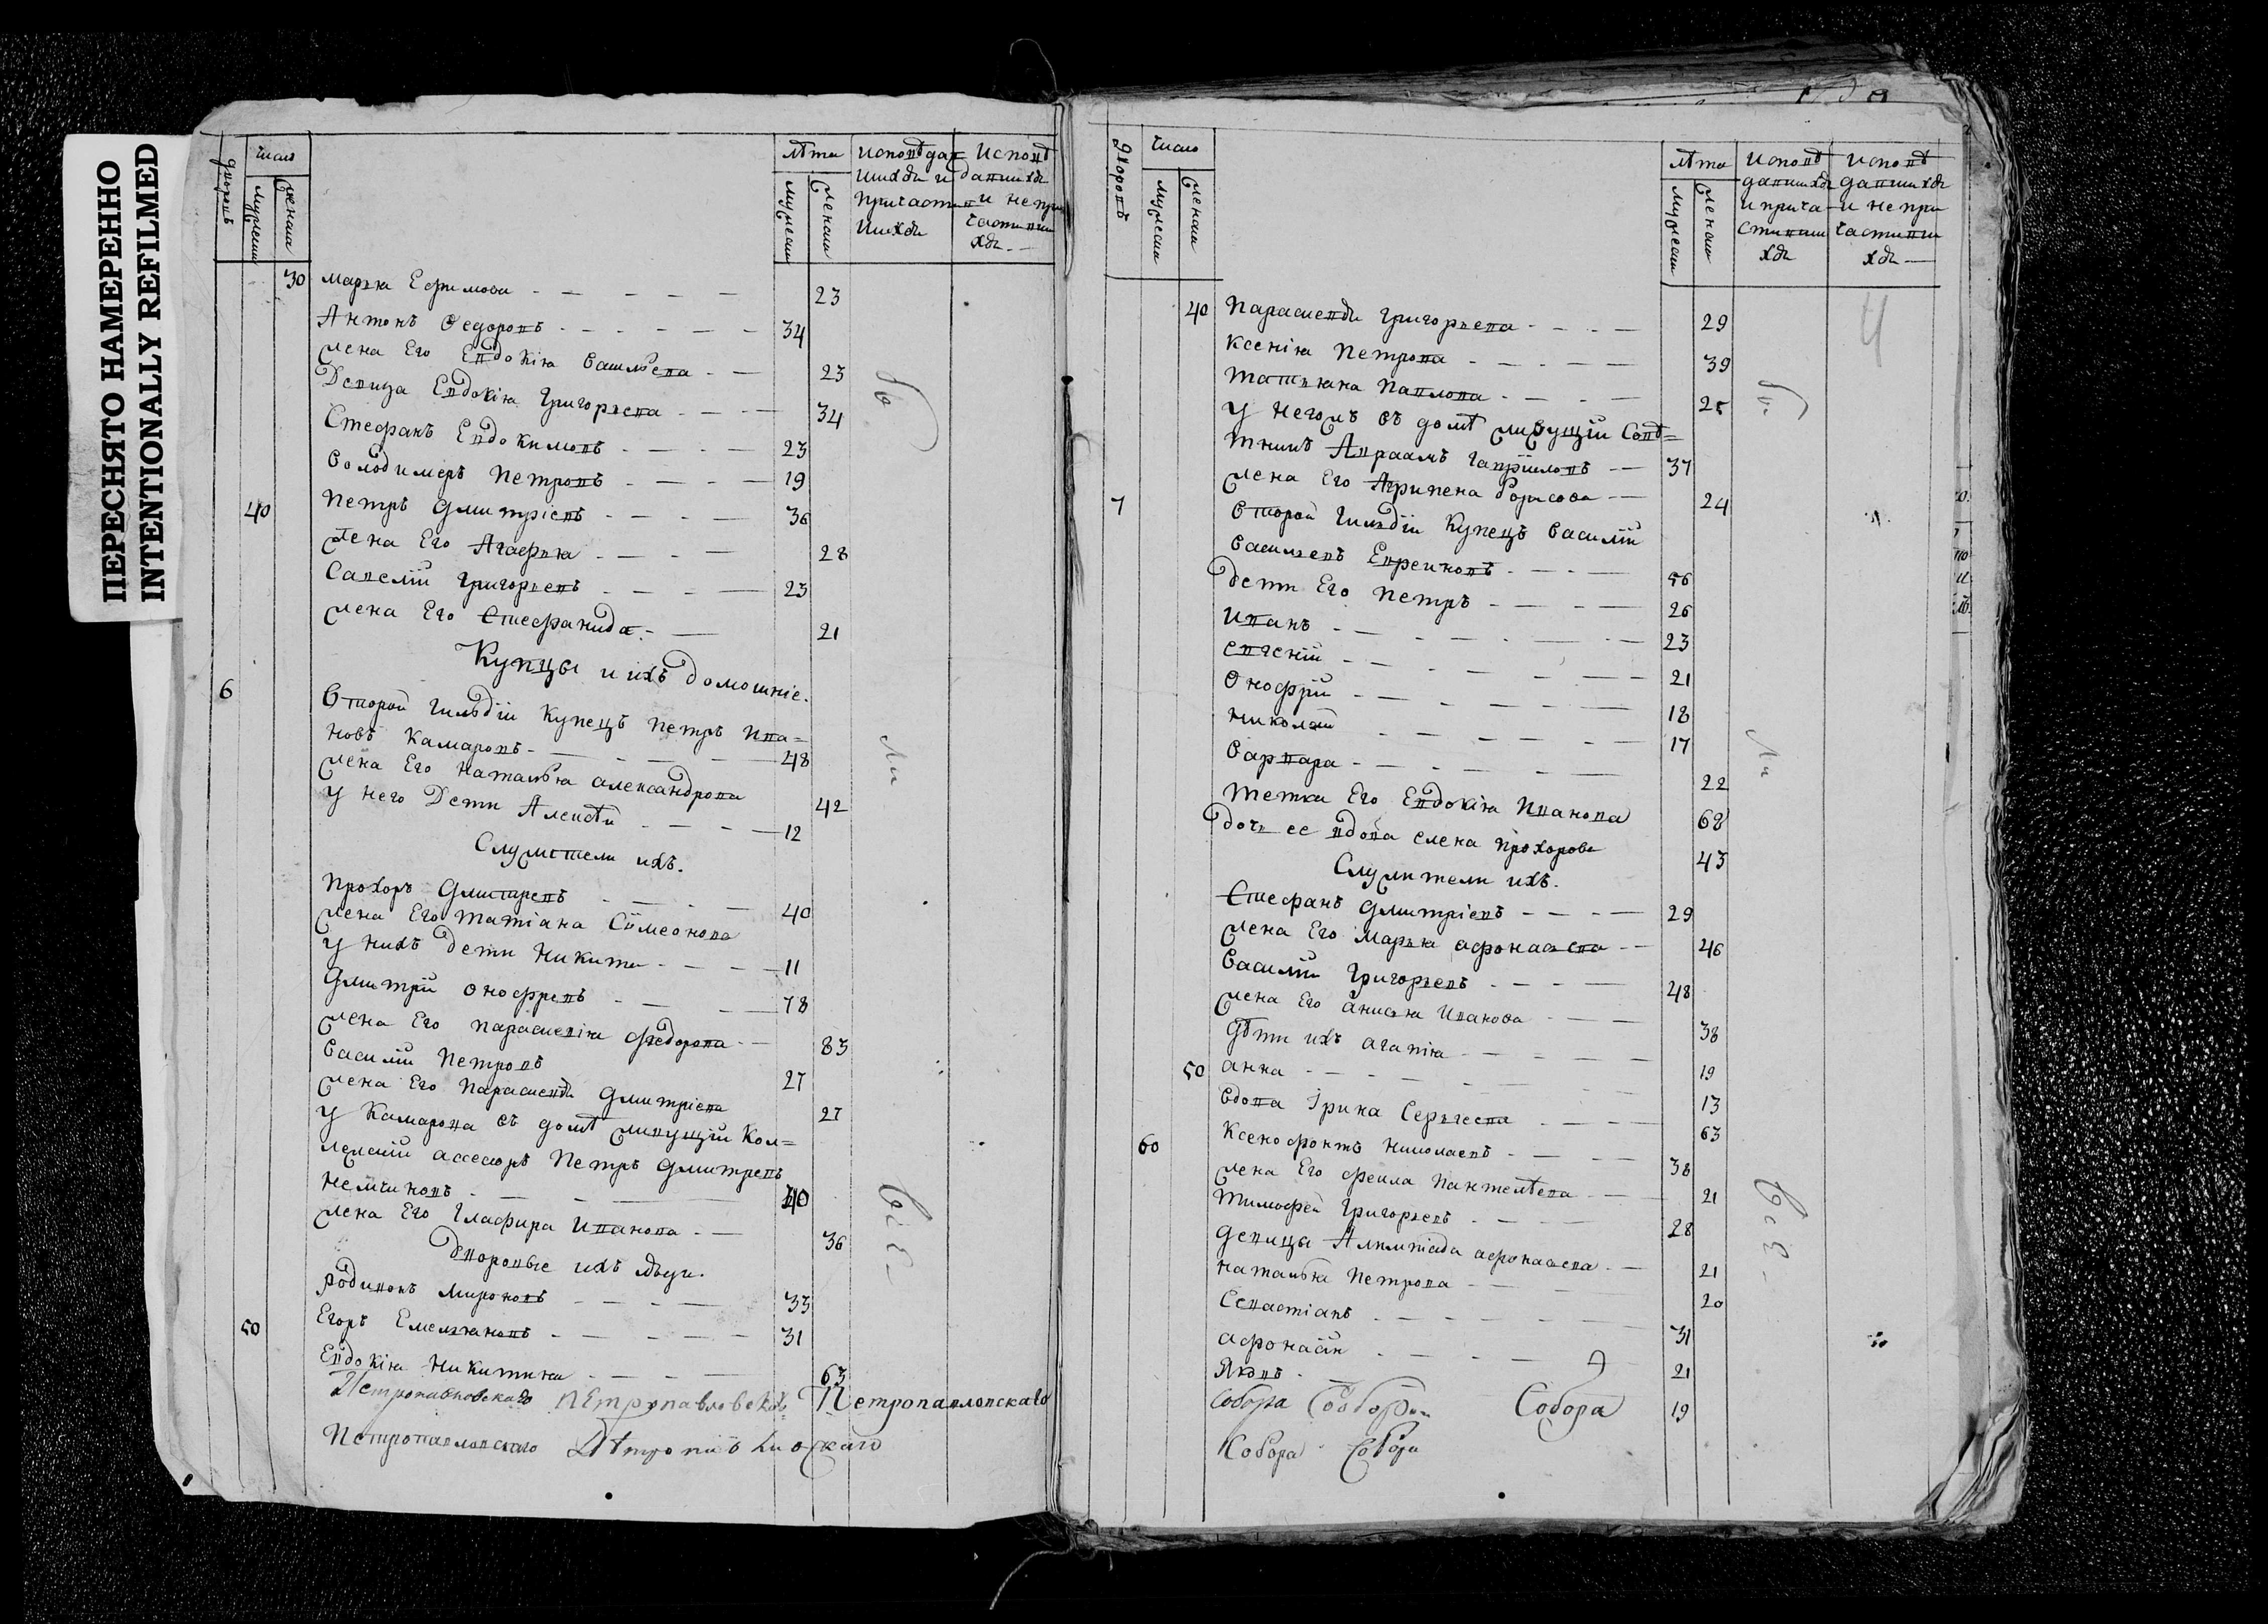 ПЕРЕСНЯТО НАМЕРЕННО
INTENTIONALLY REFILMED
дворовъ
Число
мужеска
женска
лѣта
мужеска
женска
Исповѣдав
шихся и
причастив
шихся
Исповѣ
давшихся
и не при
частивши
хся
30 Марья Ефимова 23
Антонъ Федоровъ 34
жена Его Евдокія Васильева 23
Девица Евдокія Григорьева 34
Стефанъ Евдокимовъ 23
Володимеръ Петровъ 19
40 Петръ Дмитріевъ 36
жена Его Агафья 28
Савелій Григорьевъ 23
жена Его Стефанида 21
Купцы и ихъ домошніе.
6 Второй Гильдіи Купецъ Петръ Ива=
новъ Камаровъ 48
жена Его Наталья Александрова 42
У него Дети Алексѣй 12
Служители ихъ.
Прохоръ Дмитревъ 40
жена Его Татіана Сімеонова
У нихъ дети Никита 11
Дмитрій Онофревъ 78
жена Его Параскевія Федорова 83
Василій Петровъ 27
жена Его Параскевья Дмитріева 27
У Камарова въ домѣ живущій Кол=
лежскій ассесоръ Петръ Дмитревъ
Немчиновъ 40
жена Его Глафира Иванова 36
Дворовые ихъ люди.
Родивонъ Мироновъ 33
50 Егоръ Емельяновъ 31
Евдокія Никитина 63
Петропавловскаго Петропавловскаго Петропавловскаго
Петропавловскаго Петропавловскаго
Дворовъ
Число
мужеска
женска
лѣта
мужеска
женска
Исповѣ
давшихся
и прича
стивши
хся
Исповѣ
давшихся
и не при
частивши
хся
40 Параскевья Григорьева 29
Ксенія Петрова 39
Татьяна Павлова 25
У негожъ въ домѣ живущій Совѣ=
тникъ Авраамъ Гавріиловъ 37
жена Его Агрипена Борисова 24
7 Второй Гильдіи Купецъ Василій
Васильевъ Евреиновъ 56
Дети Его Петръ 26
Иванъ 23
Евгеній 21
Онофрій 18
Николай 17
Варвара 22
Тетка Его Евдокія Иванова 68
Дочь ее вдова Елена Прохорова 43
Служители ихъ.
Стефанъ Дмитріевъ 29
жена Его Марья Афонасьева 46
Василій Григорьевъ 48
жена Его Анисья Иванова 38
Дѣти ихъ Агапія 19
50 Анна 13
Вдова Ірина Сергеева 63
60 Ксенофонтъ Николаевъ 38
жена Его Фекла Пантелѣева 21
Тимофей Григорьевъ 28
Девицы Алимпіада Афонасьева 21
Наталья Петрова 20
Севастіанъ 31
Афонасій 21
Яковъ 19
Собора Собора Собора
Собора Собора